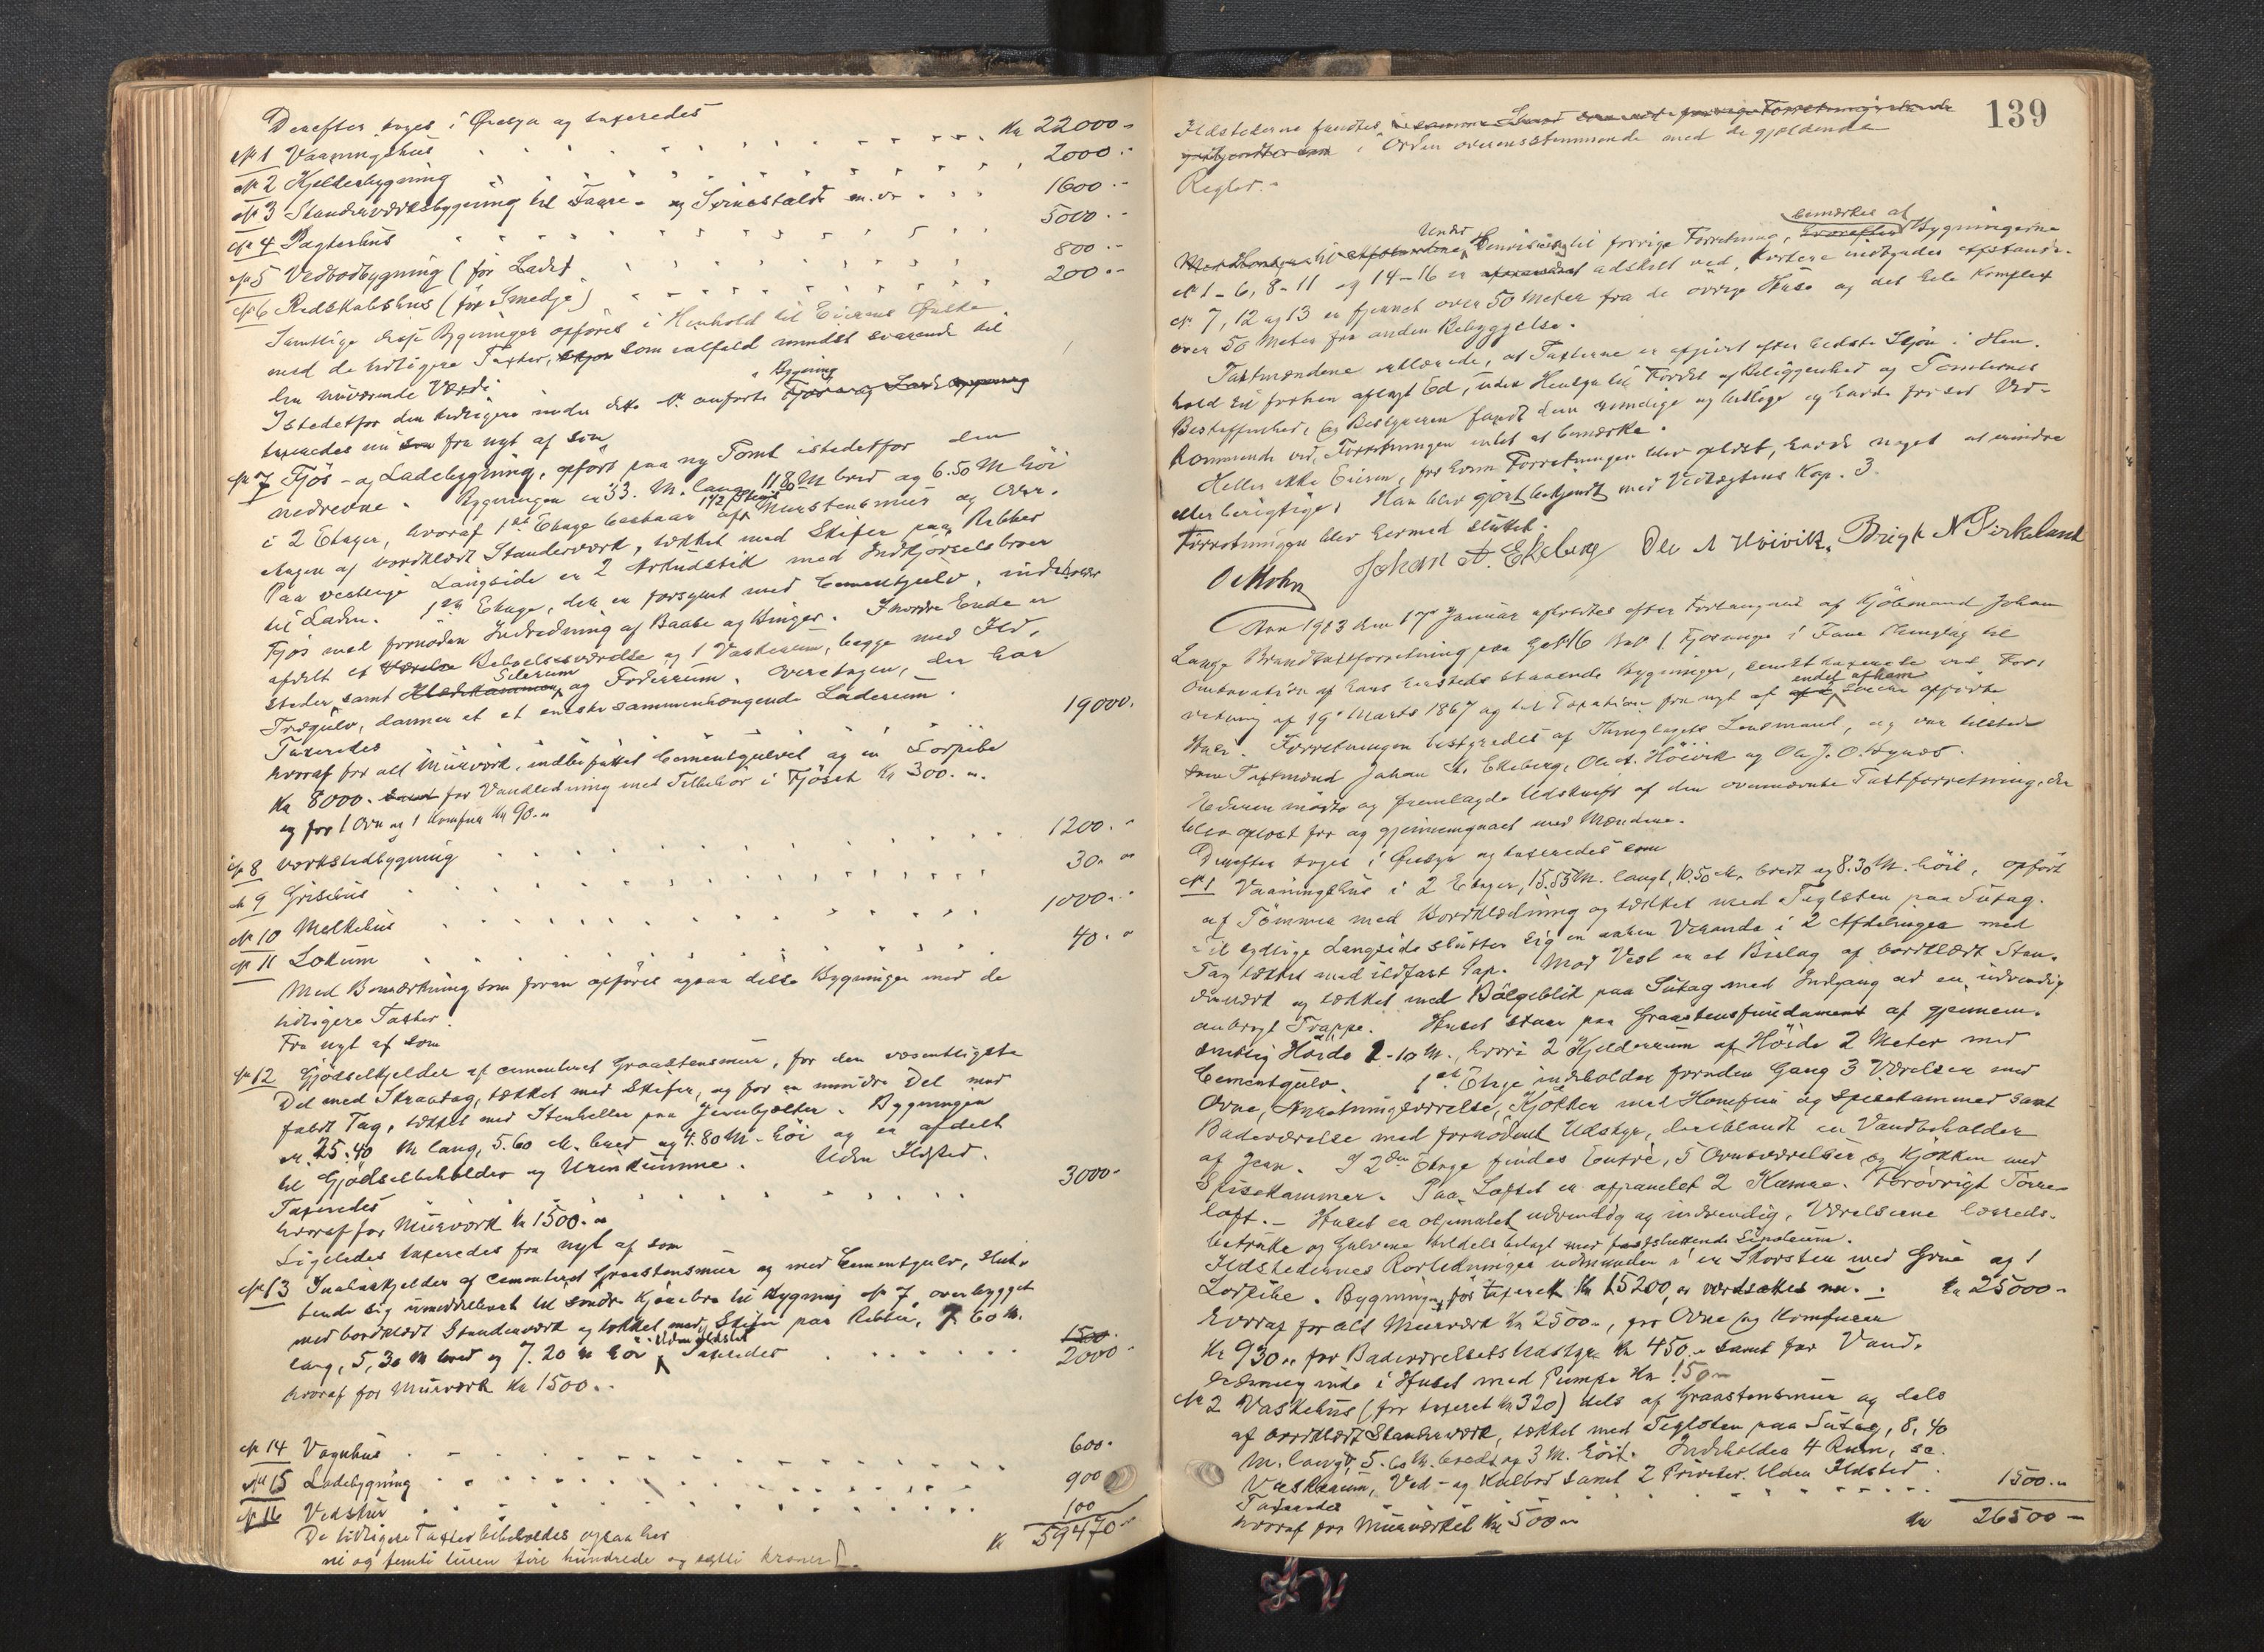 Derefter toges i Øiesyn og taxeredes
№ 1 Vaaningshus . . . Kr 22000 -
№ 2 Kjelderbygning . . . 2000.-
№ 3 Standerværksbygning til Faare- og Svinestald m.v. . . 1600.-
№ 4 Pagterhus . . . 5000.-
№ 5 Vedbodbygning (før Lade) . . . 800.-
№ 6 Redskabshus (før Smedje) . . . 200.-
Samtlige disse Bygninger opføres i Henhold til Eierens Ønske
med de tidligere Taxter, som ialfald mindst svarende til
den nuværende Værdi.
Istedetfor den tidligere under dette № anførte Bygning Fjøs og Lade
taxeredes nu fra nyt af som
№ 7 Fjøs- og Ladebygning, opført paa ny Tomt istedetfor den
nedrevne. Bygningen er 33. M. lang 11.80 M bred og 6.50 M høi
i 2 Etager, hvoraf 1ste Etage bestaar af 1 1/2 Stens Murstensmur og Over-
etagen af bordklædt Standerværk, tækket med Skifer paa Ribber
Paa vestlige Langside er 2 Arkudstik med Indkjørselsbroer
til Laden. 1ste Etage, der er forsynet med Cementgulv, indeholder
Fjøs med fornøden Indredning af Baase og Binger. I nordre Ende er
afdelt et Værelse Beboelsesværelse og 1 Vaskerum, begge med Ild-
steder, samt Silerum og Foderrum. Overetagen, der har
Trægulv, danner et eneste sammenhængende Laderum.
Taxeredes . . . 19000.
hvoraf for alt Murværk, indbefattet Cementgulvet og en Lodpibe
Kr 8000. for Vandledning med Tilbehør i Fjøset Kr 300.-
og for 1 Ovn og 1 Komfur Kr 90.-
№ 8 Værkstedbygning . . . 1200.-
№ 9 Grisehus . . . 30.-
№ 10 Melkehus . . . 1000.-
№ 11 Lokum . . . 40.-
Med Bemærkning som foran opføres ogsaa disse Bygninger med de
tidligere Taxter.
Fra nyt af som
№ 12 Gjødselkjelder af cementeret Graastensmur, for den væsentligste
Del med Skraatag, tækket med Skifer, og for en mindre Del med
fladt Tag, tækket med Stenheller paa Jernbjelker. Bygningen
er 25.40 M lang, 5.60 M. bred og 4.80 M. høi og er afdelt
til Gjødselbeholder og Urinkumme. Uden Ildsted.
Taxeredes . . . 3000-
hvoraf for Murværk Kr 1500.-
Ligeledes taxeredes fra nyt af som
№ 13 Indkjelder af cementeret Graastensmur og med Cementgulv, slut-
tende sig umiddelbart til søndre Kjørebro til Bygning № 7, overbygget
med bordklædt Standerværk og tækket med Skifer paa Ribber, 7.60 M.
lang, 5,30 M bred og 7.20 M høi. Uden Ildsted Taxeredes . . . 1500 2000-
hvoraf for Murværk Kr 1500.-
№ 14 Vognhus . . . 600.
№ 15 Ladebygning . . . 900
№ 16 Vedskur . . . 100
De tidligere Taxter beholdes ogsaa her
Kr 59470-
ni og femti tusen fire hundrede og sytti kroner
139
Ildstederne fandtes i samme Stand som ved forrige Forretning
i Orden overensstemmende med de gjældende
Regler.-
Under Henvisning til forrige Forretning, bemærkes at Bygningerne
№ 1-6, 8-11 og 14-16 er adskilt ved kortere indbyrdes Afstande.
№ 7, 12 og 13 er fjernet over 50 Meter fra de øvrige Huse og det hele Komplex
over 50 Meter fra anden Bebyggelse.
Taxtmændene erklærede, at Taxterne er afgivet efter bedste Skjøn i Hen-
hold til forhen aflagt Ed, uden Hensyn til Jordens Beliggenhed og Tomternes
Beskaffenhed. Og Bestyreren fandt dem rimelige og billige og havde forsvidt Ved-
kommende ved Forretningen intet at bemærke.
Heller ikke Eieren, for hvem Forretningen blev oplæst, havde noget at erindre
eller berigtige. Han blev gjort bekjendt med Vedtægtens Kap. 3.
Forretningen blev hermed sluttet.
O. Mohn Johan A. Ekeberg Ole A Høivik. Brigt N Birkeland
Aar 1913 den 17de Januar afholdtes efter Forlangende af Kjøbmand Johan
Lange Brandtaxtforretning paa G.№ 16 B.№ 1 Fjøsanger i Fane Thinglag til
Omtaxation af hans hersteds staaende Bygninger, senest taxerede ved For-
retning af 19. Marts 1867 og til Taxation fra nyt af endel af ham senere opførte
Huse. Forretningen bestyredes af Thinglagets Lensmand, og var tilstede
som Taxtmænd Johan A. Ekeberg, Ole A. Høivik og Ole J. O. Bynæs.
Eieren mødte og fremlagde Udskrift af den ovennævnte Taxtforretning, der
blev oplæst for og gjennemgaaet med Mændene.
Derefter toges i Øiesyn og taxeredes som
№ 1 Vaaningshus i 2 Etager, 15.55 M. langt, 10.50 M. bredt og 8.30 M. høit, opført
af Tømmer med Bordklædning og tækket med Teglsten paa Sutag.
Til sydlige Langside slutter sig en aaben Veranda i 2 Afdelinger med
Tag tækket med ildfast Pap. Mod Vest er et Bislag af bordklædt Stan-
derværk og tækket med Bølgeblik paa Sutag med Indgang ad en udvendig
anbragt Trappe. Huset staar paa Graastensfundament af gjennem-
snitlig Høide 2.10 M., hvori 2 Kjelderrum af Høide 2 Meter med
Cementgulv. 1ste Etage indeholder foruden Gang 3 Værelser med
Ovne, Anretningsværelse, Kjøkken med Komfur og Spisekammer samt
Badeværelse med fornødent Udstyr, deriblandt en Vandbeholder
af Jern. I 2den Etage findes Entré, 5 Ovnsværelser og Kjøkken med
Spisekammer. Paa Loftet er afpanelet 2 Kamre. Forøvrigt Tørre-
loft. - Huset er oljemalet udvendig og indvendig, Værelserne lærreds-
betrukne og Gulvene tildels belagt med fastsluttende Linoleum.
Ildstedernes Rørledninger udmunder i en Skorsten med Grue og 1
Lodpibe. Bygningen, før taxeret Kr 15200, er værdsættes nu . . Kr 25000-
hvoraf for alt Murværk Kr 2500.-, for Ovne og Komfurer
Kr 930.- for Badeværelsets Udstyr Kr 450.- samt for Vand-
ledning inde i Huset med Pumpe Kr 150.-
№ 2 Vaskehus (før taxeret Kr 320) dels af Graastensmur og dels
af bordklædt Standerværk, tækket med Teglsten paa Sutag, 8,40
M. langt, 5.60 M. bredt og 3 M. høit. Indeholder 4 Rum, sc.
Vaskerum, Ved- og Kulbod samt 2 Priveter. Uden Ildsted.
Taxeredes . . . 1500.-
hvoraf for Murværket Kr 500.-
Kr 26500-